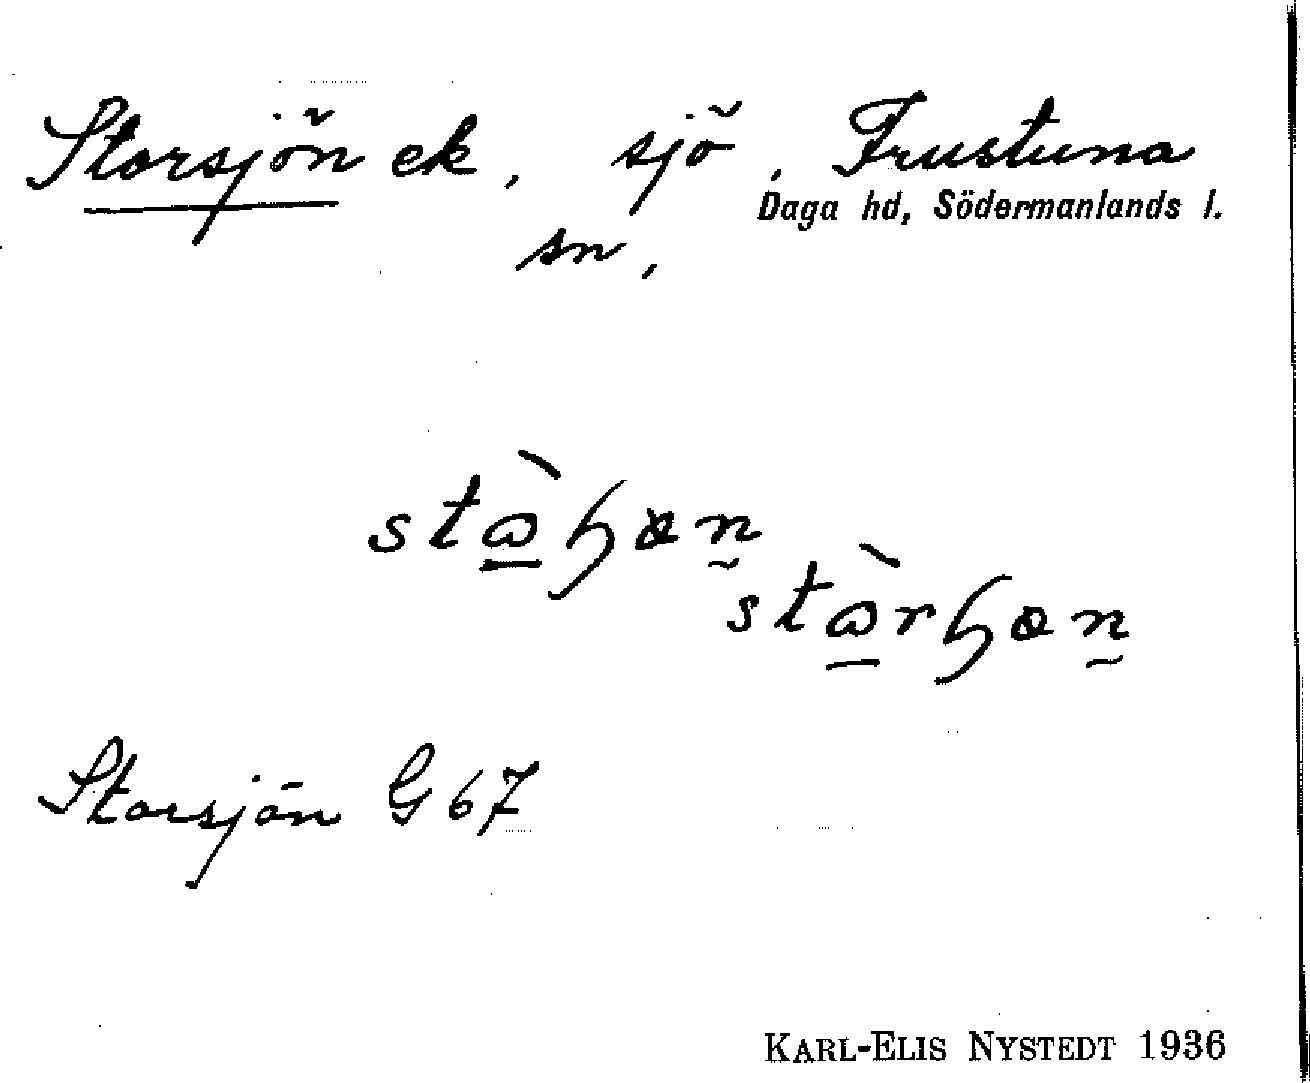 Storsjön ek, sjö, Frustuna
Daga hd, Södermanlands l.
sn,
Storsjön G 67
KARL-ELIS NYSTEDT 1936